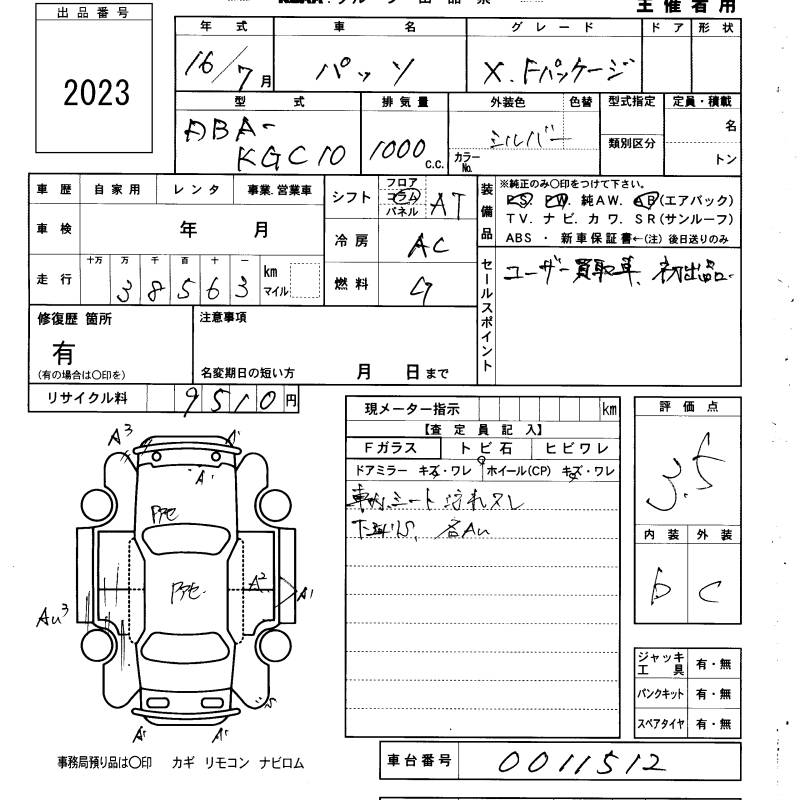 出品番号
2023
主催者用
年式 車名 グレード ドア 形状
16/7月 パッソ X.Fパッケージ
型式 排気量 外装色 色替 型式指定 定員・積載
ABA-
KGC10 1000c.c. シルバー
カラーNo. 類別区分 名
トン
車歴 自家用 レンタ 事業.営業車
シフト フロア コラム パネル AT
車検 年 月
冷房 AC
走行 十万 万 千 百 十 一
38563 km マイル
燃料 G
装備品
※純正のみ〇印をつけて下さい。
PS. PW. 純AW. AB(エアバック)
TV. ナビ. カワ. SR(サンルーフ)
ABS ・ 新車保証書←(注) 後日送りのみ
セールスポイント
ユーザー買取車、初出品.
修復歴 箇所
有
(有の場合は〇印を)
注意事項
名変期日の短い方 月 日まで
リサイクル料 9510円
現メーター指示 km
【査定員記入】
Fガラス トビ石 ヒビワレ
ドアミラー キズ・ワレ ホイール(CP) キズ・ワレ
車内シート汚れスレ
下廻りS, 各Au
評価点
3.5
内装 外装
b C
ジャッキ工具 有・無
パンクキット 有・無
スペアタイヤ 有・無
A3 A1
A1
A2
A1
Au3
S
A1 A1
事務局預り品は〇印 カギ リモコン ナビロム
車台番号 0011512